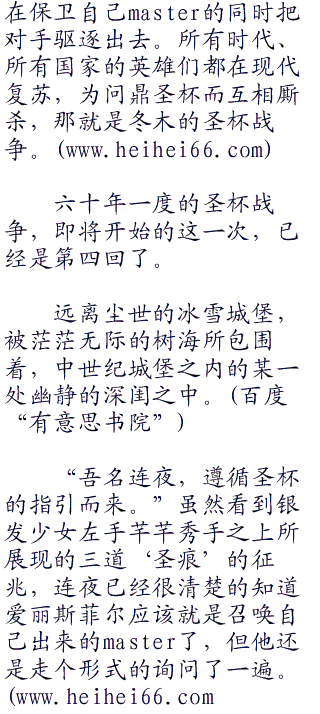 在保卫自己master的同时把
对手驱逐出去。所有时代、
所有国家的英雄们都在现代
复苏，为问鼎圣杯而互相厮
杀，那就是冬木的圣杯战
争。(www.heihei66.com)
六十年一度的圣杯战
争，即将开始的这一次，已
经是第四回了。
远离尘世的冰雪城堡，
被茫茫无际的树海所包围
着，中世纪城堡之内的某一
处幽静的深闺之中。(百度
“有意思书院”)
“吾名连夜，遵循圣杯
的指引而来。”虽然看到银
发少女左手芊芊秀手之上所
展现的三道‘圣痕’的征
兆，连夜已经很清楚的知道
爱丽斯菲尔应该就是召唤自
己出来的master了，但他还
是走个形式的询问了一遍。
(www.heihei66.com